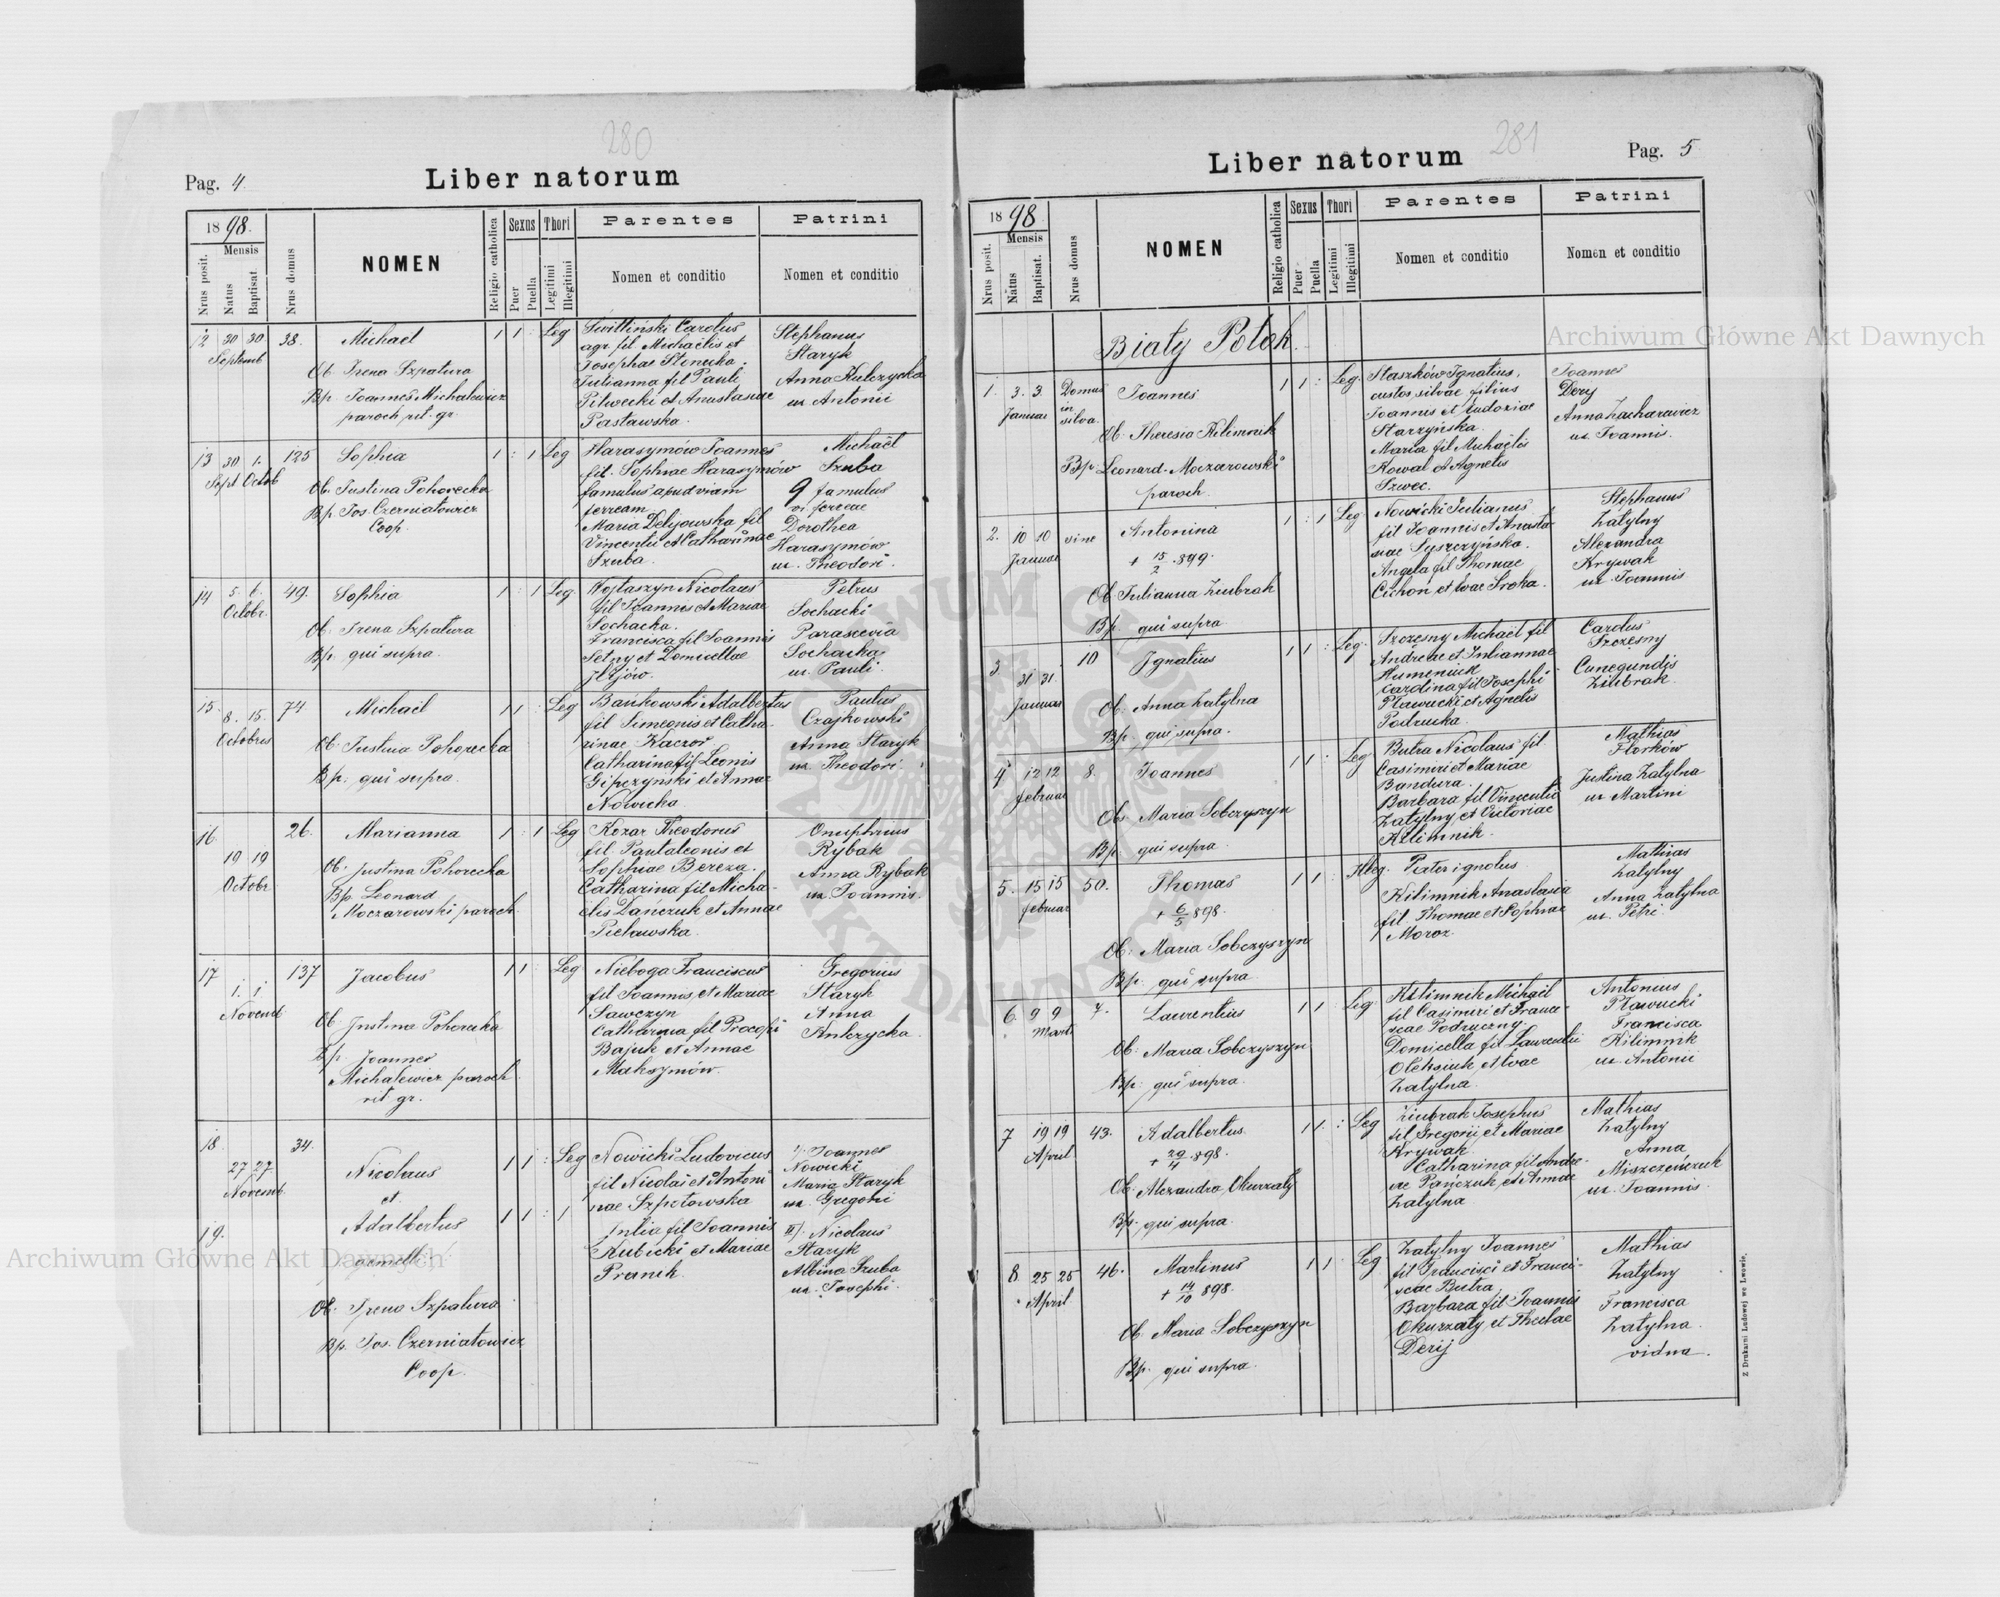 280
Pag. 4
Liber natorum
1898.
Mensis
Nrus posit.
Natus
Baptisat.
Nrus domus
NOMEN
Religio catholica
Sexus
Puer
Puella
Thori
Legitimi
Illegitimi
Parentes
Nomen et conditio
Patrini
Nomen et conditio
12 30 30 38. Michaël 1 1 : Leg
Septemb
Ob. Irena Szpatura
Bp. Joannes Michalewicz
paroch. rit. gr.
agr. fil. Michaëlis et
Julianna fil Pauli
Pitwecki et Anastasiae
Stephanus
Staryk
Anna Kulczycka
ux. Antonii
13 30 1. 125 Sophia 1 : 1 Leg
Sept Octob
Ob. Justina Pohorecka
Bp. Jos. Czerniatowicz
Coop.
Harasymów Joannes
fil. Sophiae Harasymów
famulus apud viam
ferream
Maria Delijowska fil
Vincentii et Catharinae
Szuba.
Michaël
Szuba
famulus
vi. ferreae
Dorothea
Harasymów
ux. Theodori.
14 5. 6. 49. Sophia 1 : 1 Leg.
Octobr.
Ob. Irena Szpatura
Bp. qui supra.
Wojtaszyn Nicolaus
fil Joannis et Mariae
Sochacka.
Francisca fil Joannis
Setny et Domicellae
Petrus
Sochacki
Parascevia
Sochacka
ux. Pauli.
15. 8. 15. 74 Michaël 1 1 : Leg
Octobris
Ob. Justina Pohorecka
Bp: qui supra.
Bańkowski Adalbertus
fil Simeonis et Catha-
rinae Kaczor
Catharina fil Leonis
Gipczyński et Annae
Nowicka
Paulus
Czajkowski
Anna Staryk
ux. Theodori.
16. 19 19 26. Marianna 1 : 1 Leg
Octobr
Ob. Justina Pohorecka
Bp. Leonard
Moczarowski paroch.
Kozar Theodorus
fil. Pantaleonis et
Sophiae Bereza.
Catharina fil Micha-
ëlis Dańczuk et Annae
Pielawska.
Onuphrius
Rybak
Anna Rybak
ux. Joannis.
17 1. 1 137 Jacobus 1 1 : Leg
Novemb
Ob. Justina Pohorecka
Bp. Joannes
Michalewicz paroch
rit gr.
Nieboga Franciscus
fil Joannis et Mariae
Sawczyn
Catharina fil Procopi
Bajuk et Annae
Maksymów.
Gregorius
Staryk
Anna
18. 27 27 34. Nicolaus 1 1 : Leg
Novemb.
et.
19. Adalbertus 1 1 : 1
gemelli
Ob. Irena Szpatura
Bp. Jos. Czerniatowicz
Coop.
Nowicki Ludovicus
fil Nicolai et Antoni
nae Szpotowska
Julia fil Joannis
Kubicki et Mariae
Pranik.
Joannes
Nowicki
Maria Staryk
ux. Gregorii
II). Nicolaus
Staryk
Albina Szuba
ux. Josephi.
281
Liber natorum
Pag. 5
1898
Mensis
Nrus posit.
Natus
Baptisat.
Nrus domus
NOMEN
Religio catholica
Sexus
Puer
Puella
Thori
Legitimi
Illegitimi
Parentes
Nomen et conditio
Patrini
Nomen et conditio
Biały Potok.
1. 3. 3. Domus in silva Joannes 1 1 : Leg.
Januar
Ob. Theresia Kilimnik
Bp. Leonard. Moczarowski
paroch.
Staszków Ignatius,
custos silvae filius
Joannis et Eudoxiae
Starzyńska.
Maria fil Michaëlis
Kowal et Agnetis
Szwec.
Joannes
Derij
Anna Zacharewicz
ux. Joannis.
2. 10 10 Antonina 1 : 1 Leg
Januar
+ 15/2 .899.
Ob Julianna Ziubrak
Bp. qui supra
Nowicki Julianus
fil Joannis et Anasta-
siae Suszczyńska.
Angela fil Thomae
Cichoń et Evae Sroka.
Stephanus
Zatylny
Alexandra
Krywak
ux. Joannis
3. 31 31. 10 Ignatius 1 1 : Leg.
Januar
Ob. Anna Zatylna
Bp. qui supra.
Szczęsny Michaël fil
Andreae et Juliannae
Humeniuk
Carolina fil Josephi
Pławucki et Agnetis
Podrucka.
Carolus
Szczęsny
Cunegundis
Ziubrak.
4 12 12 8. Joannes 1 1 : Leg
Februar
Ob. Maria Sobczyszyn
Bp. qui supra.
Butra Nicolaus fil.
Casimiri et Mariae
Bandura.
Barbara fil Vincentii
Zatylny et Victoriae
Kilimnik.
Mathias
Florków
Justina Zatylna
ux Martini
5. 15 15 50. Thomas 1 1 : Illeg.
Februar
+ 6/5 898.
Ob: Maria Sobczyszyn
Bp. qui supra
Pater ignotus.
Kilimnik Anastasia
fil. Thomae et Sophiae
Moroz.
Mathias
Zatylny
Anna Zatylna
ux. Petri.
6. 9 9 7. Laurentius 1 1 : Leg.
Mart
Ob: Maria Sobczyszyn
Bp: qui supra.
Kilimnik Michaël
fil Casimiri et Franci-
scae Podruczny.
Domicella fil Laurentii
Oleksiuk et Evae
Zatylna.
Antonius
Pławucki
Francisca
Kilimnik
ux. Antonii
7 19 19 43. Adalbertus 1 1 : Leg
April
+ 29/4 .898.
Ob. Alexandra Okurzaty
Bp. qui supra.
Ziubrak Josephus
fil Gregorii et Mariae
Krywak
Catharina fil Andre-
ae Pańczuk et Annae
Zatylna
Mathias
Zatylny
Anna
Miszczeńczuk
ux. Joannis.
8. 25 25 46. Martinus 1 1 : Leg
April
+ 14/10 898.
Ob. Maria Sobczyszyn
Bp. qui supra.
Zatylny Joannes
fil Francisci et Franci-
scae Butra,
Barbara fil Joannis
Okurzaty et Theclae
Derij
Mathias
Zatylny
Francisca
Zatylna.
vidua.
Z Drukarni Ludowej we Lwowie.
Archiwum Główne Akt Dawnych
Archiwum Główne Akt Dawnych
ARCHIWUM GŁÓWNE AKT DAWNYCH